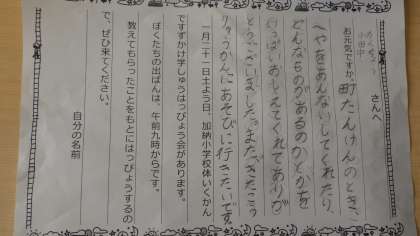 さんへ
お元気ですか。町たんけんのとき、
へやをあんないしてくれたり、
どんなものがあるのかとかを
いっぱいおしえてくれてありが
とうございました。またできたころ
りゅうがくかんにあそびに行きたいです。
一月二十一日土よう日、加納小学校体いくかん
ですずかけ学しゅうはっぴょう会があります。
ぼくたちの出ばんは、午前九時からです。
教えてもらったことをもとにはっぴょうするの
で、ぜひ来てください。
自分の名前